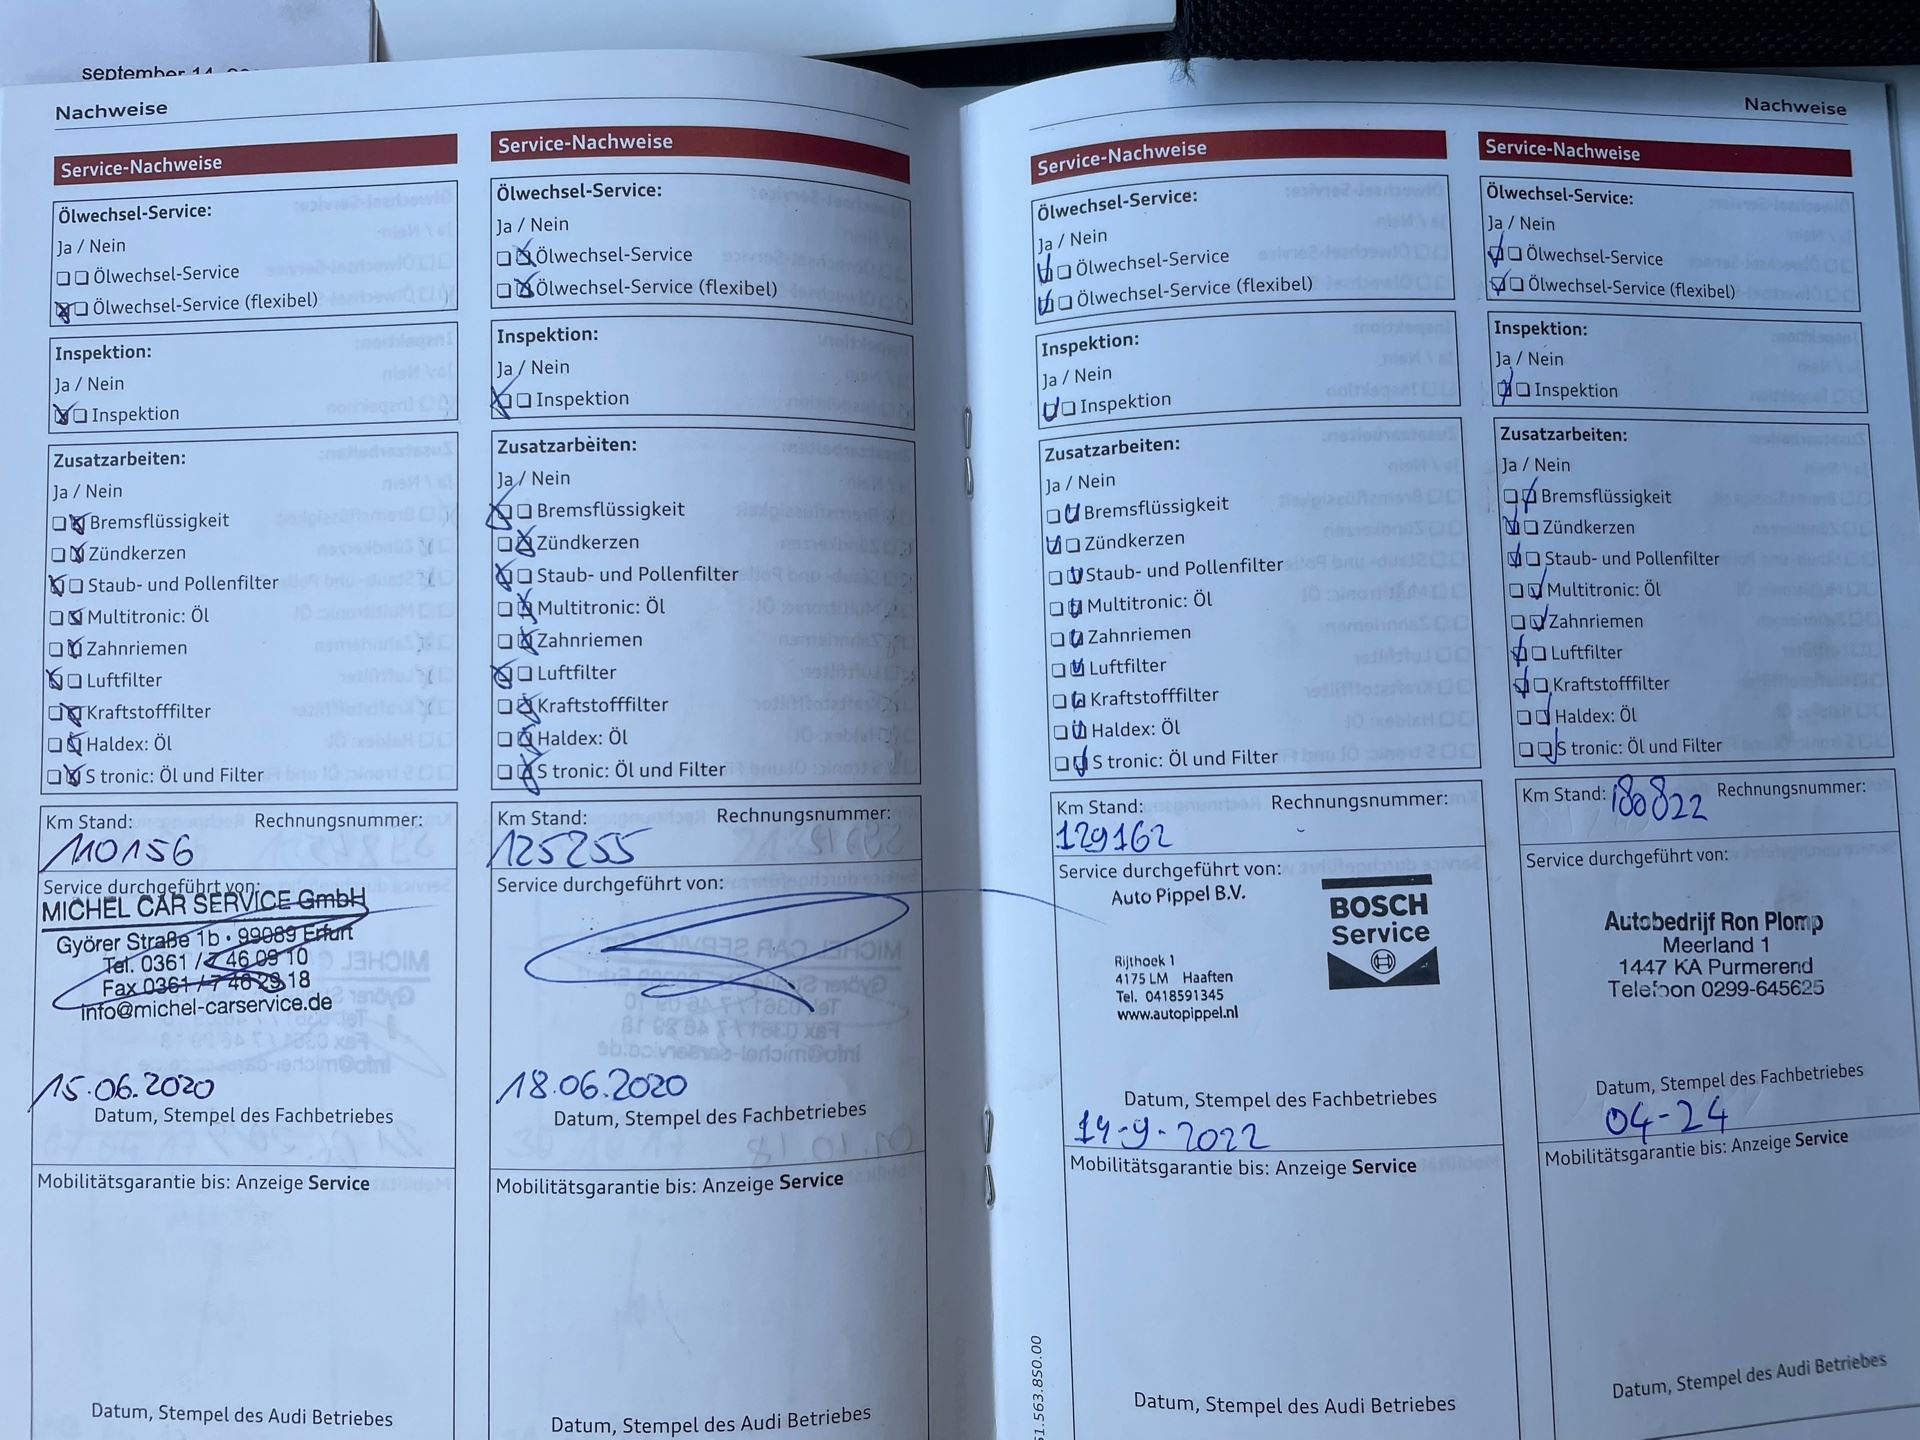 september 14, 20
Nachweise
Service-Nachweise
Ölwechsel-Service:
Ja / Nein
Ölwechsel-Service
Ölwechsel-Service (flexibel)
Inspektion:
Ja / Nein
Inspektion
Zusatzarbeiten:
Ja / Nein
Bremsflüssigkeit
Zündkerzen
Staub- und Pollenfilter
Multitronic: Öl
Zahnriemen
Luftfilter
Kraftstofffilter
Haldex: Öl
S tronic: Öl und Filter
Km Stand: Rechnungsnummer:
110156
Service durchgeführt von:
MICHEL CAR SERVICE GmbH
Györer Straße 1b · 99089 Erfurt
Tel. 0361 / 7 46 09 10
Fax 0361 / 7 46 29 18
Info@michel-carservice.de
15.06.2020
Datum, Stempel des Fachbetriebes
Mobilitätsgarantie bis: Anzeige Service
Datum, Stempel des Audi Betriebes
Service-Nachweise
Ölwechsel-Service:
Ja / Nein
Ölwechsel-Service
Ölwechsel-Service (flexibel)
Inspektion:
Ja / Nein
Inspektion
Zusatzarbeiten:
Ja / Nein
Bremsflüssigkeit
Zündkerzen
Staub- und Pollenfilter
Multitronic: Öl
Zahnriemen
Luftfilter
Kraftstofffilter
Haldex: Öl
S tronic: Öl und Filter
Km Stand: Rechnungsnummer:
125255
Service durchgeführt von:
18.06.2020
Datum, Stempel des Fachbetriebes
Mobilitätsgarantie bis: Anzeige Service
Datum, Stempel des Audi Betriebes
Nachweise
Service-Nachweise
Ölwechsel-Service:
Ja / Nein
Ölwechsel-Service
Ölwechsel-Service (flexibel)
Inspektion:
Ja / Nein
Inspektion
Zusatzarbeiten:
Ja / Nein
Bremsflüssigkeit
Zündkerzen
Staub- und Pollenfilter
Multitronic: Öl
Zahnriemen
Luftfilter
Kraftstofffilter
Haldex: Öl
S tronic: Öl und Filter
Km Stand: Rechnungsnummer:
129162
Service durchgeführt von:
Auto Pippel B.V.
BOSCH
Service
Rijthoek 1
4175 LM Haaften
Tel. 0418591345
www.autopippel.nl
Datum, Stempel des Fachbetriebes
14-9-2022
Mobilitätsgarantie bis: Anzeige Service
Datum, Stempel des Audi Betriebes
51.563.850.00
Service-Nachweise
Ölwechsel-Service:
Ja / Nein
Ölwechsel-Service
Ölwechsel-Service (flexibel)
Inspektion:
Ja / Nein
Inspektion
Zusatzarbeiten:
Ja / Nein
Bremsflüssigkeit
Zündkerzen
Staub- und Pollenfilter
Multitronic: Öl
Zahnriemen
Luftfilter
Kraftstofffilter
Haldex: Öl
S tronic: Öl und Filter
Km Stand: 180822 Rechnungsnummer:
Service durchgeführt von:
Autobedrijf Ron Plomp
Meerland 1
1447 KA Purmerend
Telefoon 0299-645625
Datum, Stempel des Fachbetriebes
04-24
Mobilitätsgarantie bis: Anzeige Service
Datum, Stempel des Audi Betriebes